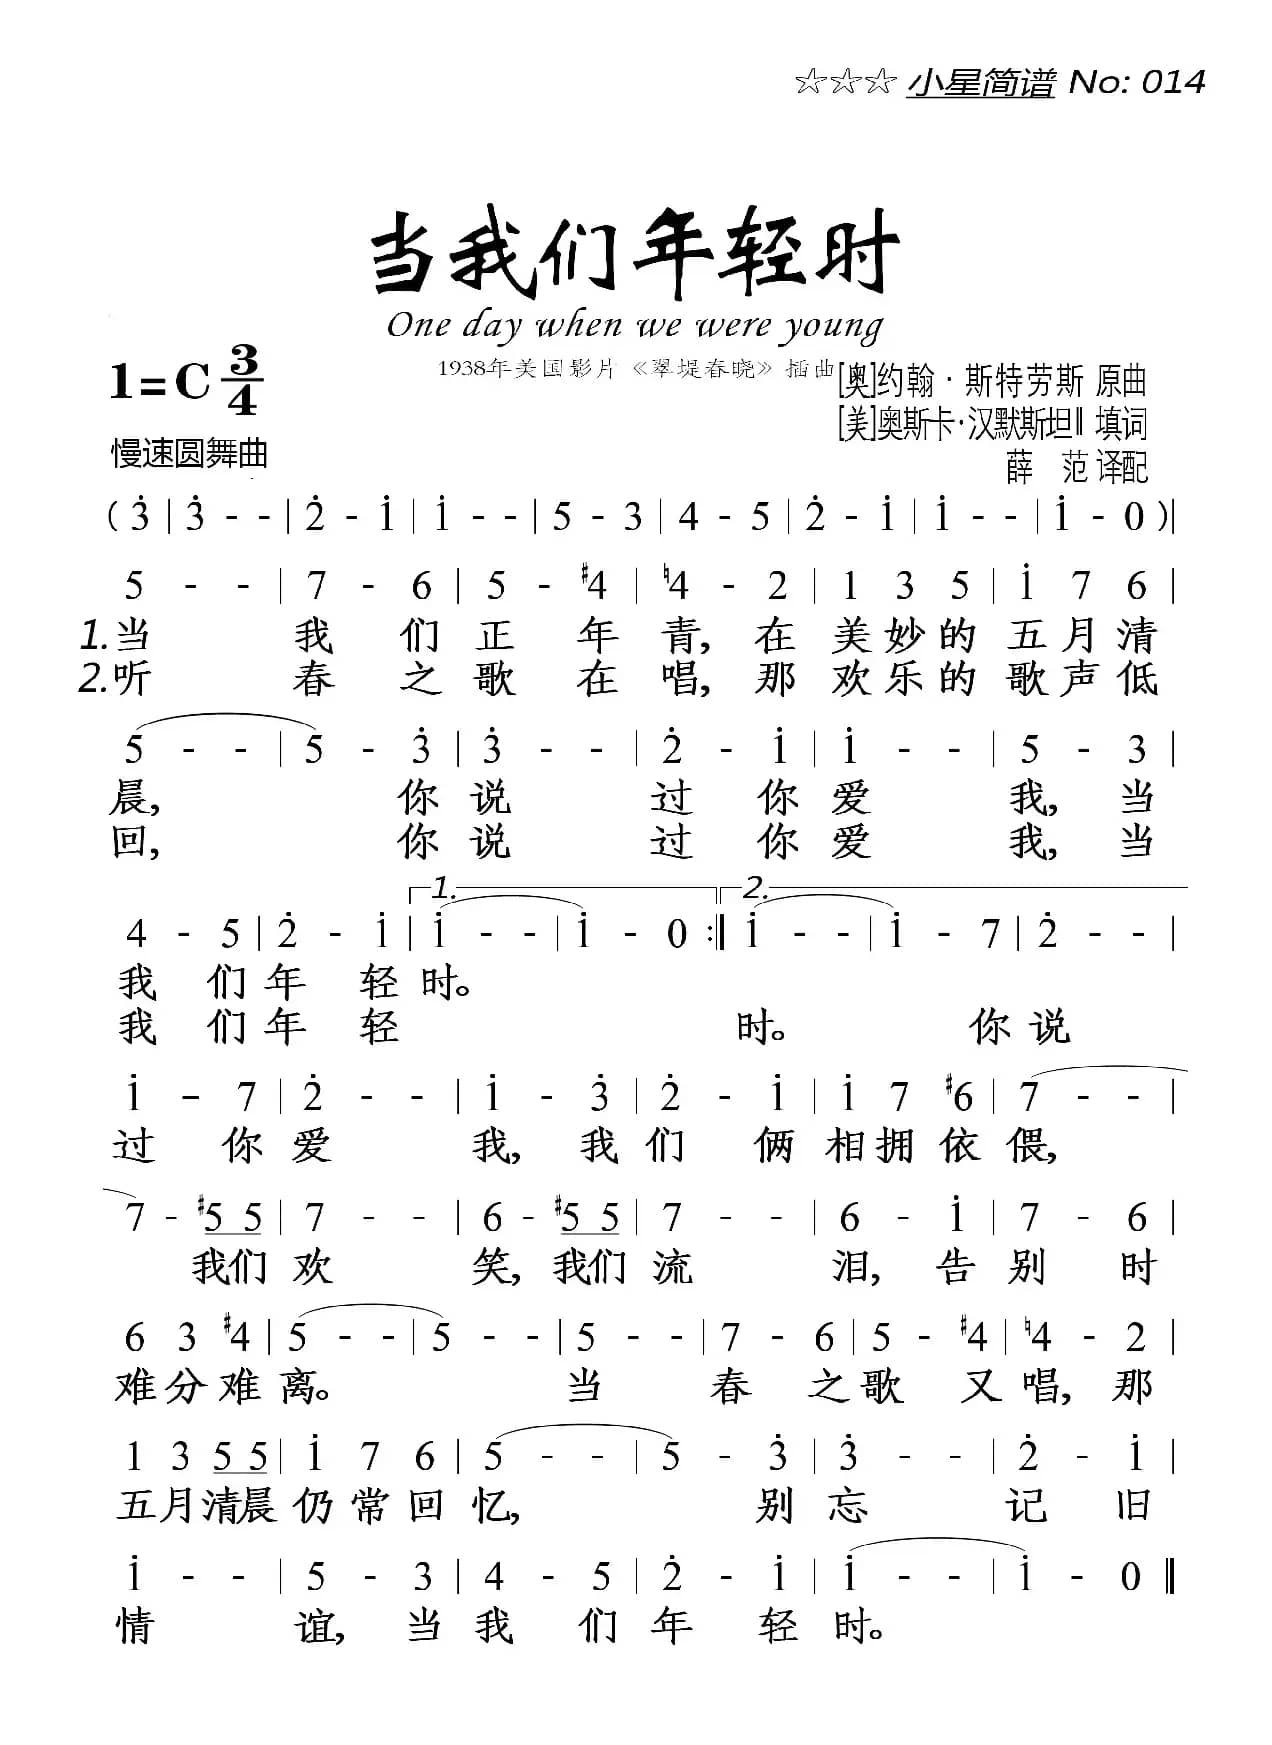 ☆☆☆ 小星简谱 No: 014
当我们年轻时
One day when we were young
1938年美国影片《翠堤春晓》插曲
1=C 3/4
[奥]约翰·斯特劳斯 原曲
[美]奥斯卡·汉默斯坦Ⅱ 填词
慢速圆舞曲
薛 范 译配
( 3̇ | 3̇ - - | 2̇ - 1̇ | 1̇ - - | 5 - 3 | 4 - 5 | 2̇ - 1̇ | 1̇ - - | 1̇ - 0 ) |
5 - - | 7 - 6 | 5 - #4 | ♮4 - 2 | 1 3 5 | 1̇ 7 6 |
1.当 我 们 正 年 青, 在 美 妙 的 五 月 清
2.听 春 之 歌 在 唱, 那 欢 乐 的 歌 声 低
5 - - | 5 - 3̇ | 3̇ - - | 2̇ - 1̇ | 1̇ - - | 5 - 3 |
晨, 你 说 过 你 爱 我, 当
回, 你 说 过 你 爱 我, 当
1. 2.
4 - 5 | 2̇ - 1̇ | 1̇ - - | 1̇ - 0 :‖ 1̇ - - | 1̇ - 7 | 2̇ - - |
我 们 年 轻 时。
我 们 年 轻 时。 你 说
1̇ - 7 | 2̇ - - | 1̇ - 3̇ | 2̇ - 1̇ | 1̇ 7 #6 | 7 - - |
过 你 爱 我, 我 们 俩 相 拥 依 偎,
7 - #5 5 | 7 - - | 6 - #5 5 | 7 - - | 6 - 1̇ | 7 - 6 |
我们 欢 笑, 我们 流 泪, 告 别 时
6 3 #4 | 5 - - | 5 - - | 5 - - | 7 - 6 | 5 - #4 | ♮4 - 2 |
难 分 难 离。 当 春 之 歌 又 唱, 那
1 3 5 5 | 1̇ 7 6 | 5 - - | 5 - 3̇ | 3̇ - - | 2̇ - 1̇ |
五 月 清晨 仍 常 回 忆, 别 忘 记 旧
1̇ - - | 5 - 3 | 4 - 5 | 2̇ - 1̇ | 1̇ - - | 1̇ - 0 ‖
情 谊, 当 我 们 年 轻 时。